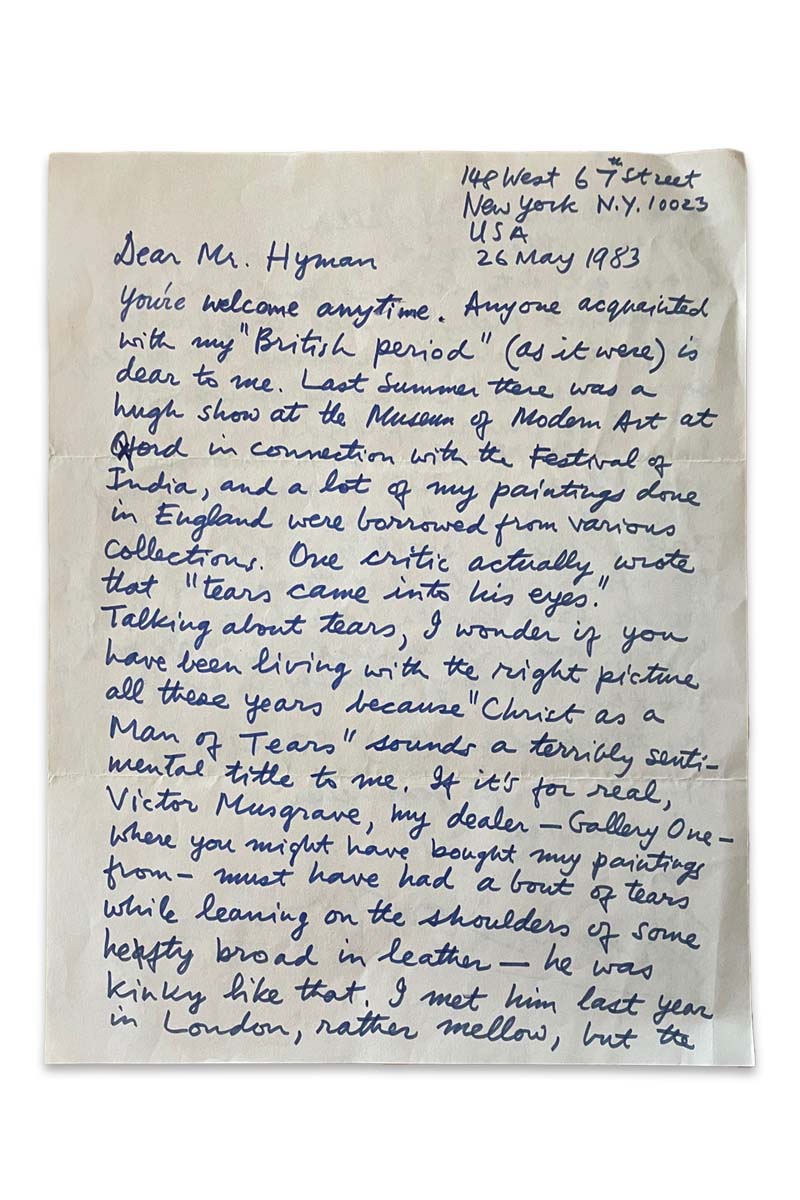 148 West 67th Street
New York N.Y. 10023
USA
26 May 1983
Dear Mr. Hyman
You're welcome anytime. Anyone acquainted
with my "British period" (as it were) is
dear to me. Last Summer there was a
hugh show at the Museum of Modern Art at
Oxford in connection with the Festival of
India, and a lot of my paintings done
in England were borrowed from various
collections. One critic actually wrote
that "tears came into his eyes."
Talking about tears, I wonder if you
have been living with the right picture
all these years because "Christ as a
Man of Tears" sounds a terribly senti-
mental title to me. If it's for real,
Victor Musgrave, my dealer – Gallery One –
where you might have bought my paintings
from – must have had a bout of tears
while leaning on the shoulders of some
hefty broad in leather – he was
kinky like that. I met him last year
in London, rather mellow, but the